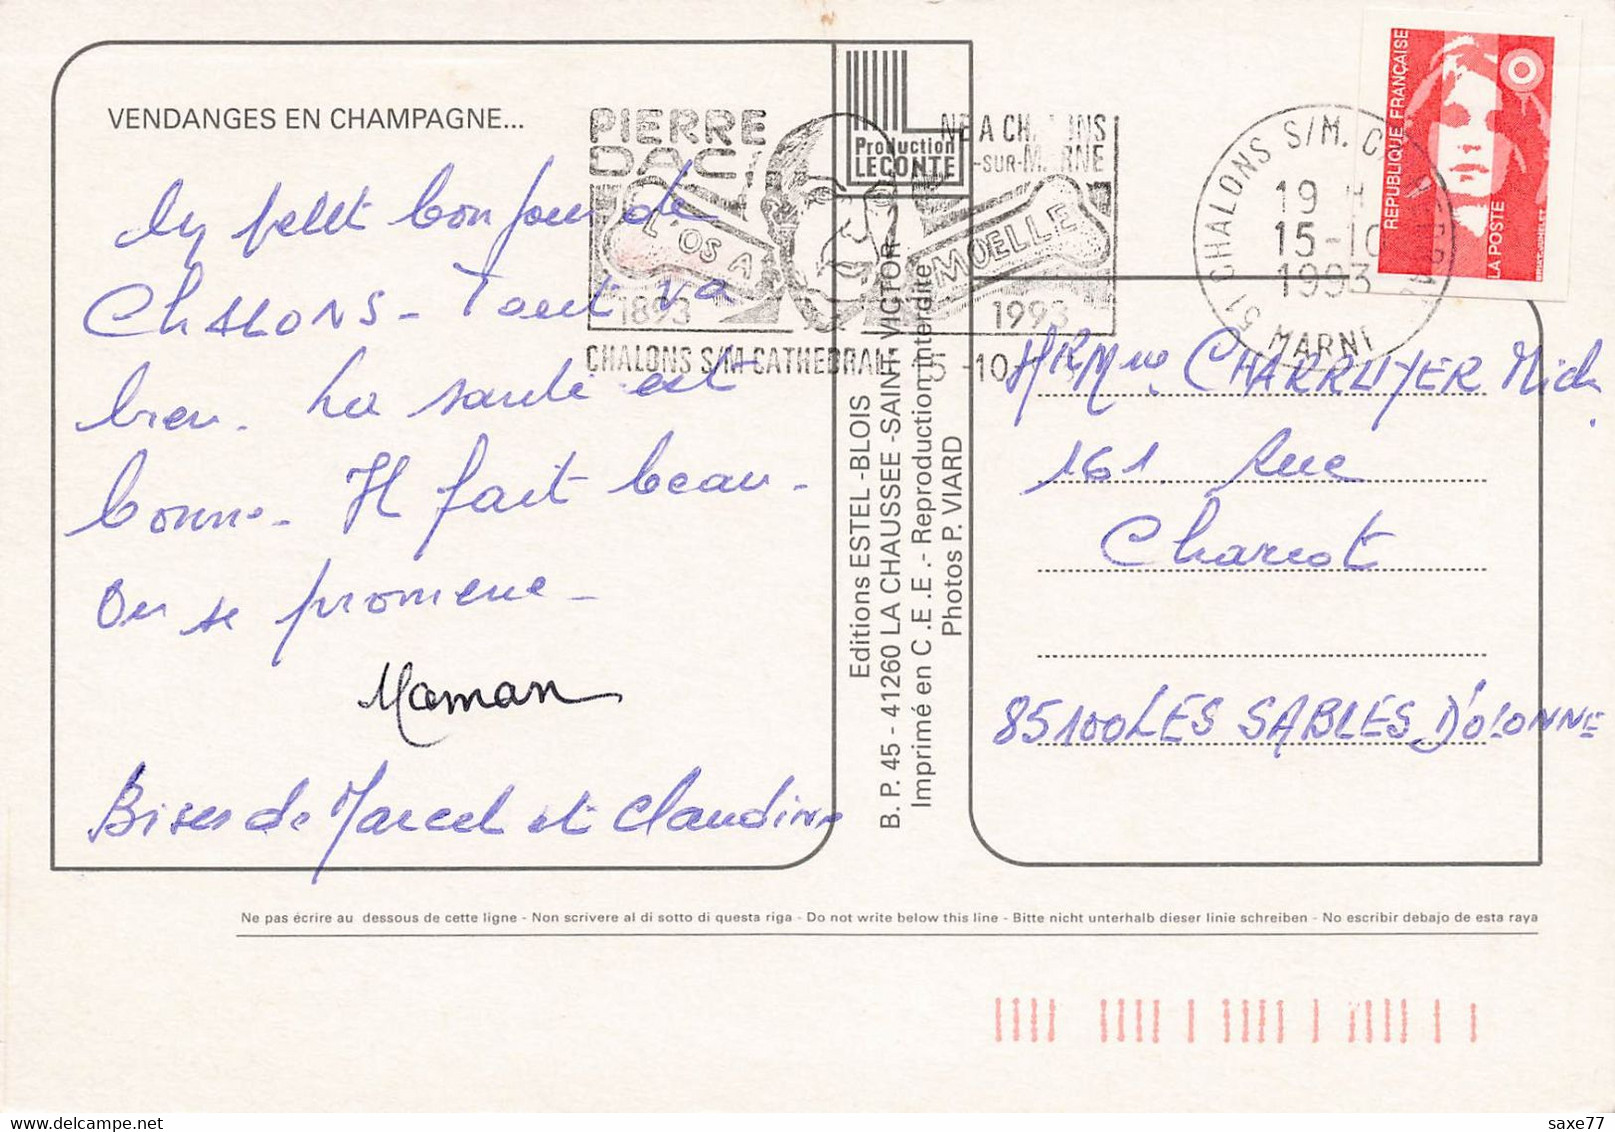 VENDANGES EN CHAMPAGNE...
Un petit bonjour de
CHALONS - Tout va
bien. La santé est
bonne - Il fait beau -
On se promene -
Maman
Bises de Marcel et Claudine
PIERRE
DAC
L'OS A
MOELLE
1893
1993
CHALONS S/M CATHEDRALE
Production
LECONTE
Editions ESTEL - BLOIS
B. P. 45 - 41260 LA CHAUSSEE - SAINT-VICTOR
Imprimé en C .E .E . - Reproduction interdite
Photos P. VIARD
51 CHALONS S/M.
19 H
15-10
1993
MARNE
REPUBLIQUE FRANÇAISE
LA POSTE
Mr Mme CHARRUYER Mich
161 Rue
Charcot
85100 LES SABLES D'OLONNE
Ne pas écrire au dessous de cette ligne - Non scrivere al di sotto di questa riga - Do not write below this line - Bitte nicht unterhalb dieser linie schreiben - No escribir debajo de esta raya
saxe77